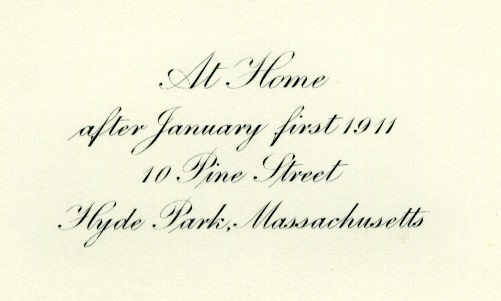 At Home
after January first 1911
10 Pine Street
Hyde Park, Massachusetts